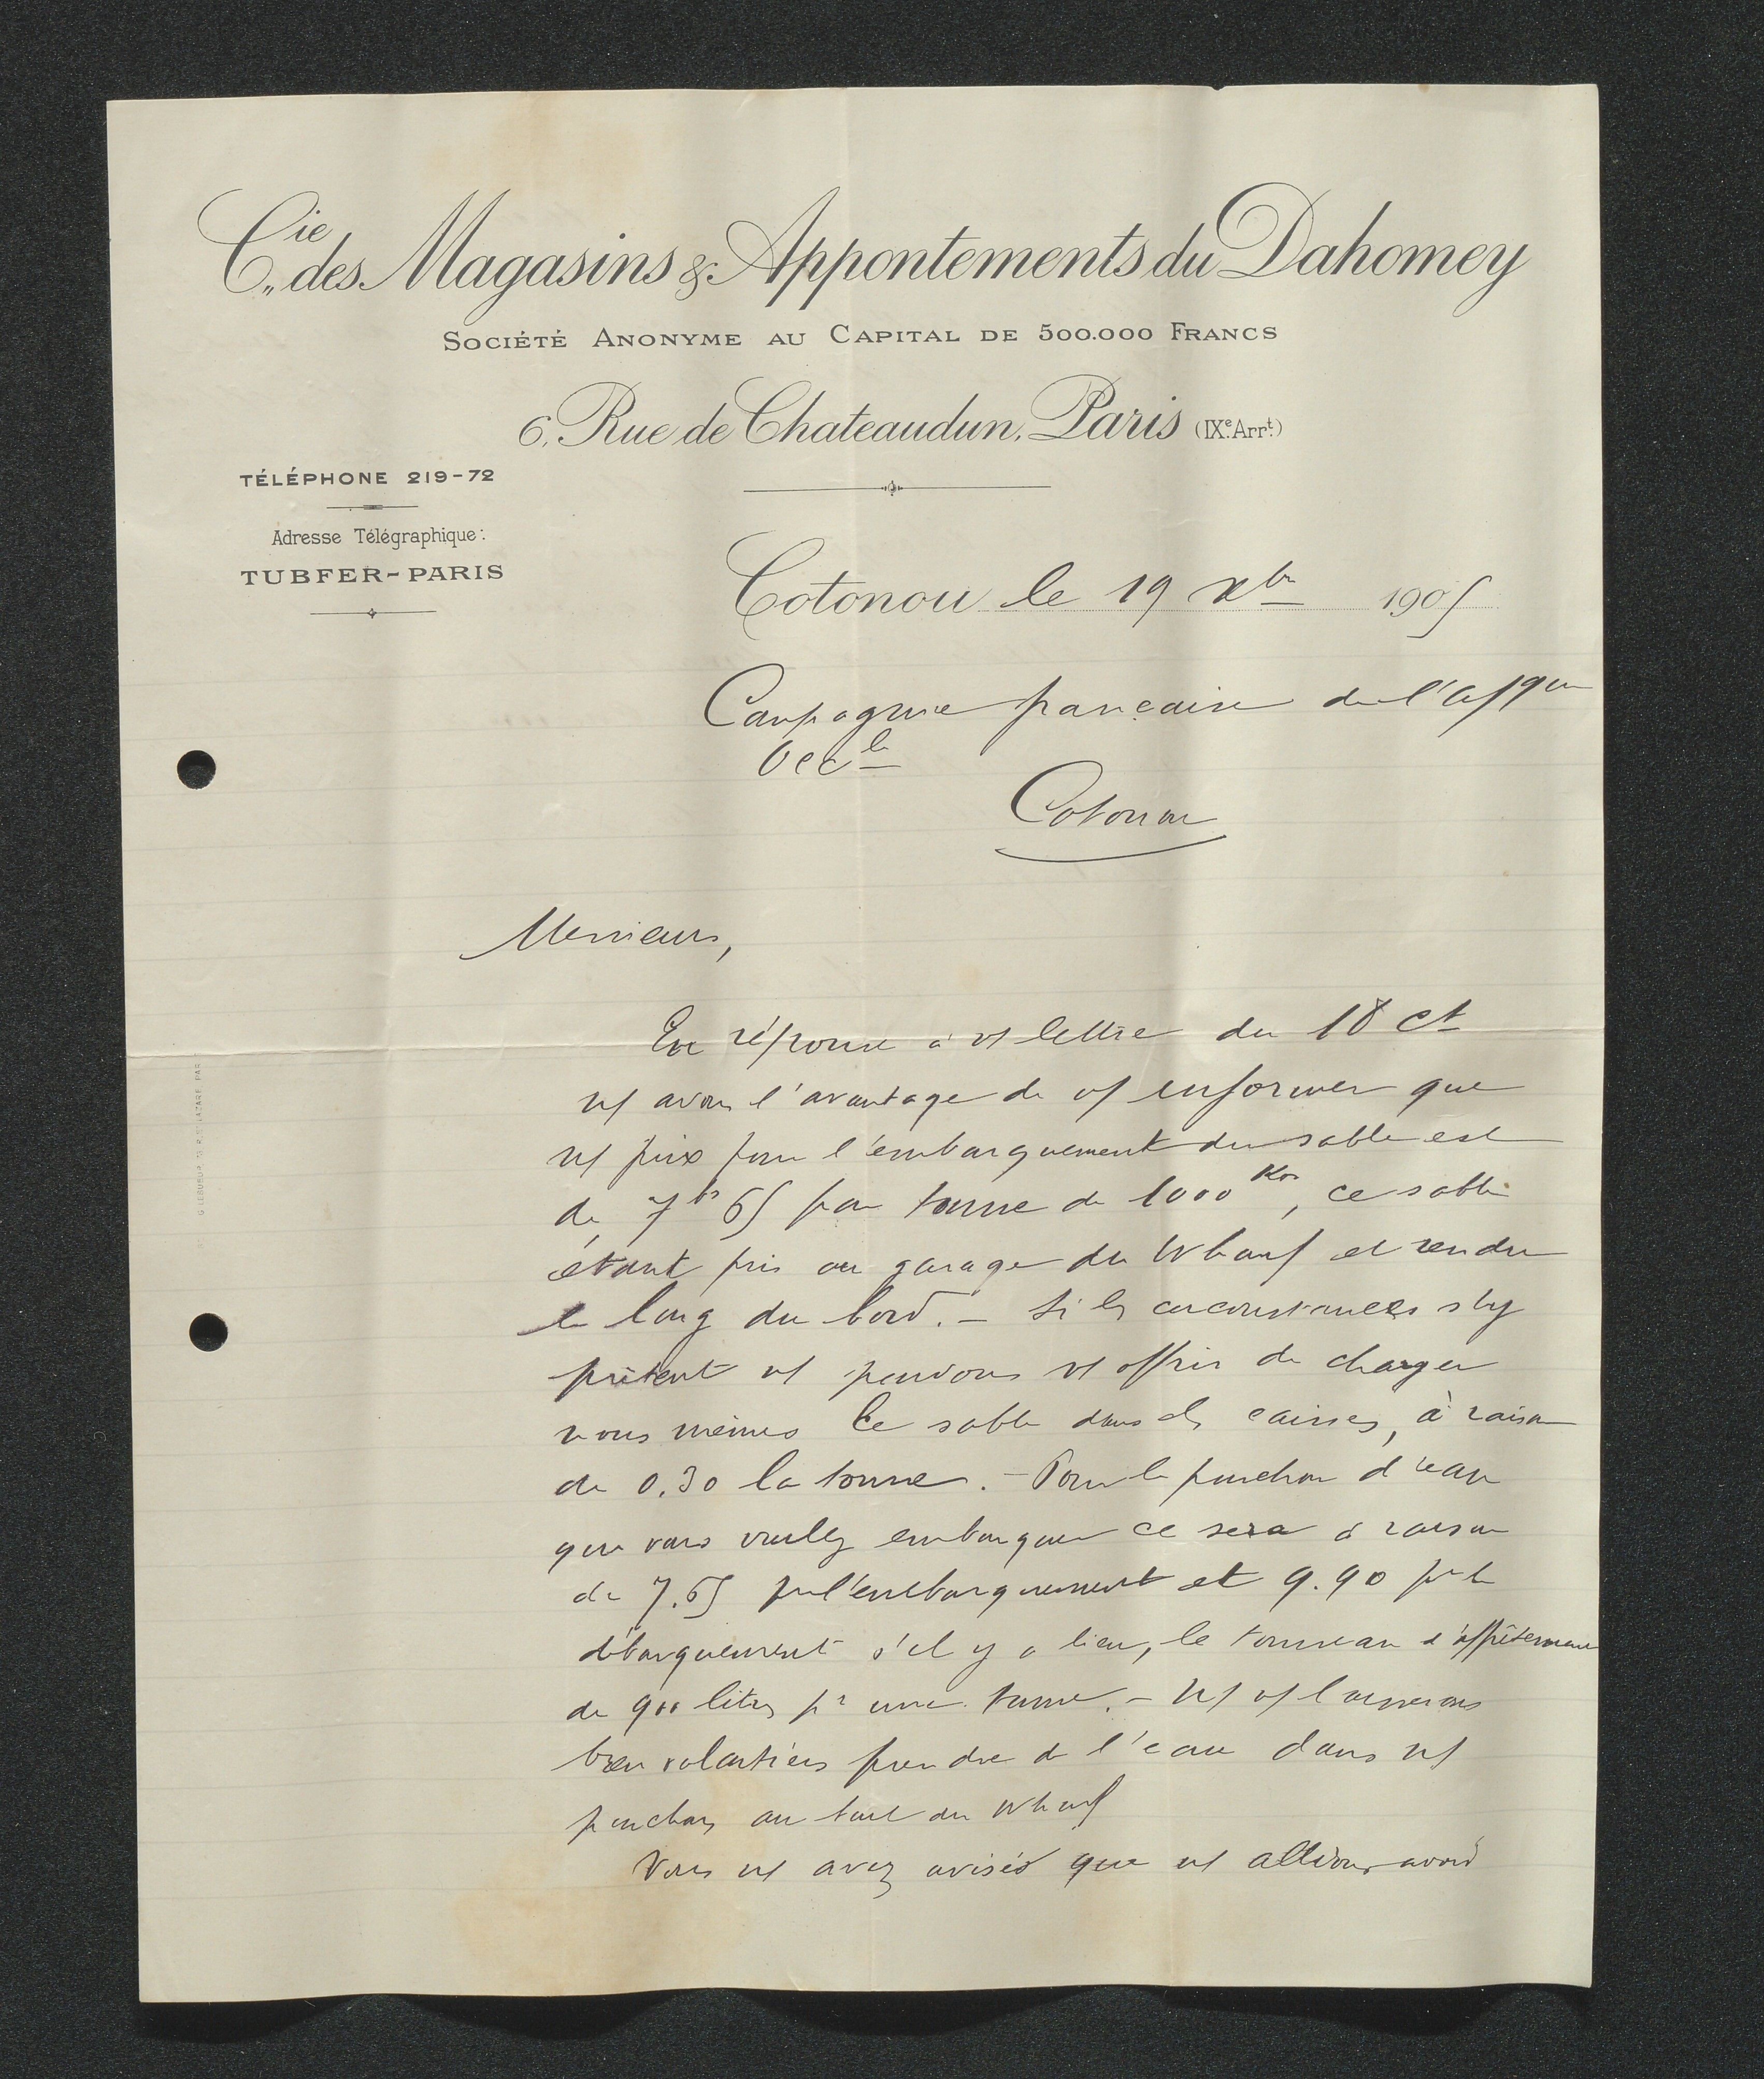 Cie des Magasins & Appontements du Dahomey
SOCIÉTÉ ANONYME AU CAPITAL DE 500.000 FRANCS
6, Rue de Chateaudun, Paris (IXe Arrt)
TÉLÉPHONE 219-72
Adresse Télégraphique:
TUBFER-PARIS
Cotonou le 19 Xbre 1905
Compagnie française de l'Afque
Occle
Cotonou
Messieurs,
En réponse à vs lettre du 18 ct
ns avons l'avantage de vs informer que
ns prix pour l'embarquement du sable est
de 7frs 65 par tonne de 1000 Kos, ce sable
étant pris au garage du Wharf et rendu
le long du bord. - Si les circonstances s'y
prêtent ns pouvons vs offrir de charger
nous mêmes le sable dans des caisses, à raison
de 0.30 la tonne. - Pour le ponchon d'eau
que vous voulez embarquer ce sera à raison
de 7.65 pr l'embarquement et 9.90 pr le
débarquement s'il y a lieu, le tonneau d'affrètement
de 900 litres pr une tonne. - Ns vs laisserons
bien volontiers prendre de l'eau dans ns
ponchons au bout du Wharf
Vous ns avez avisés que ns allions avoir